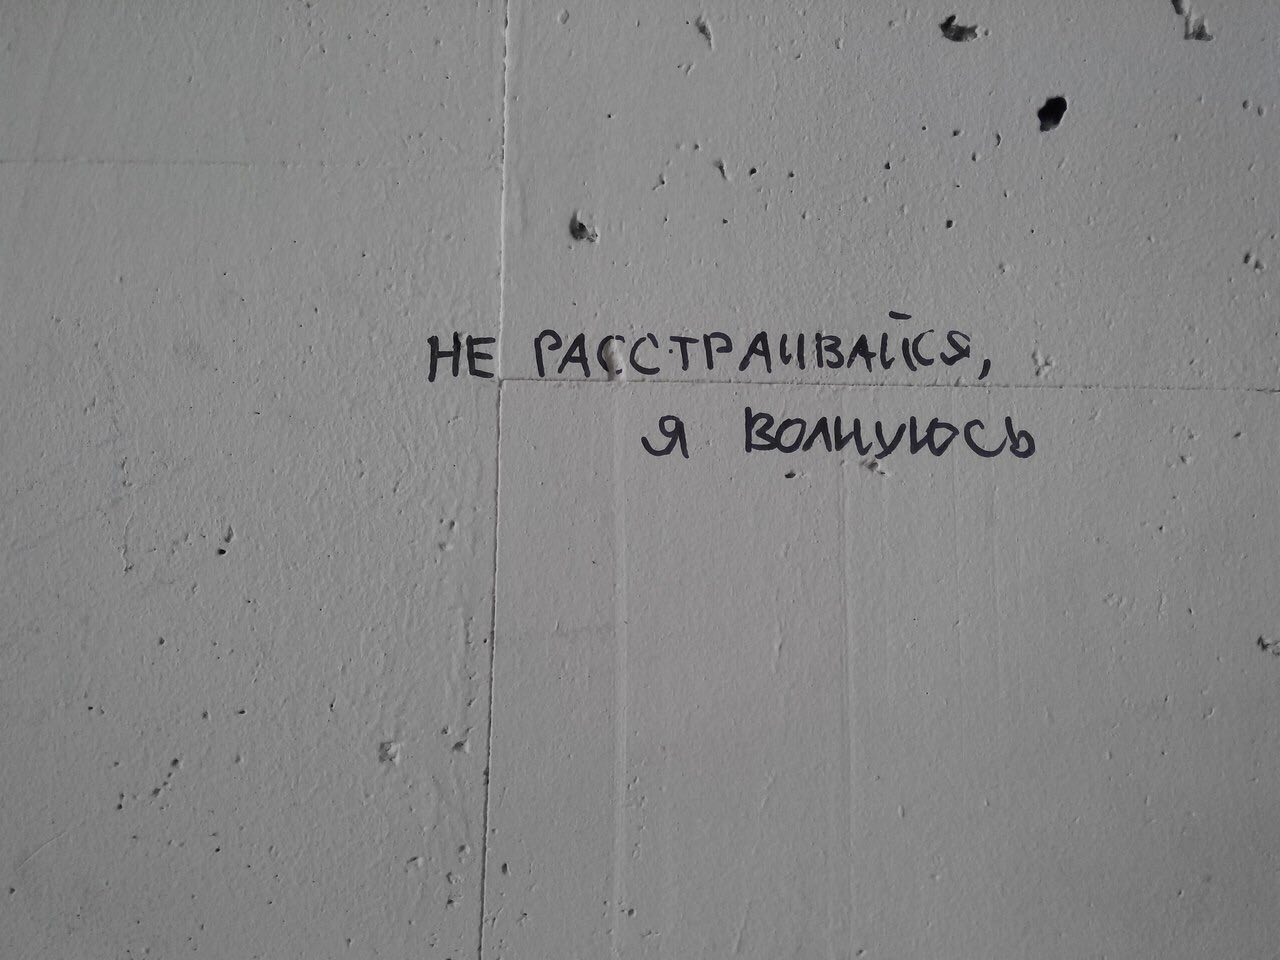 НЕ РАССТРАИВАЙСЯ,
Я ВОЛНУЮСЬ